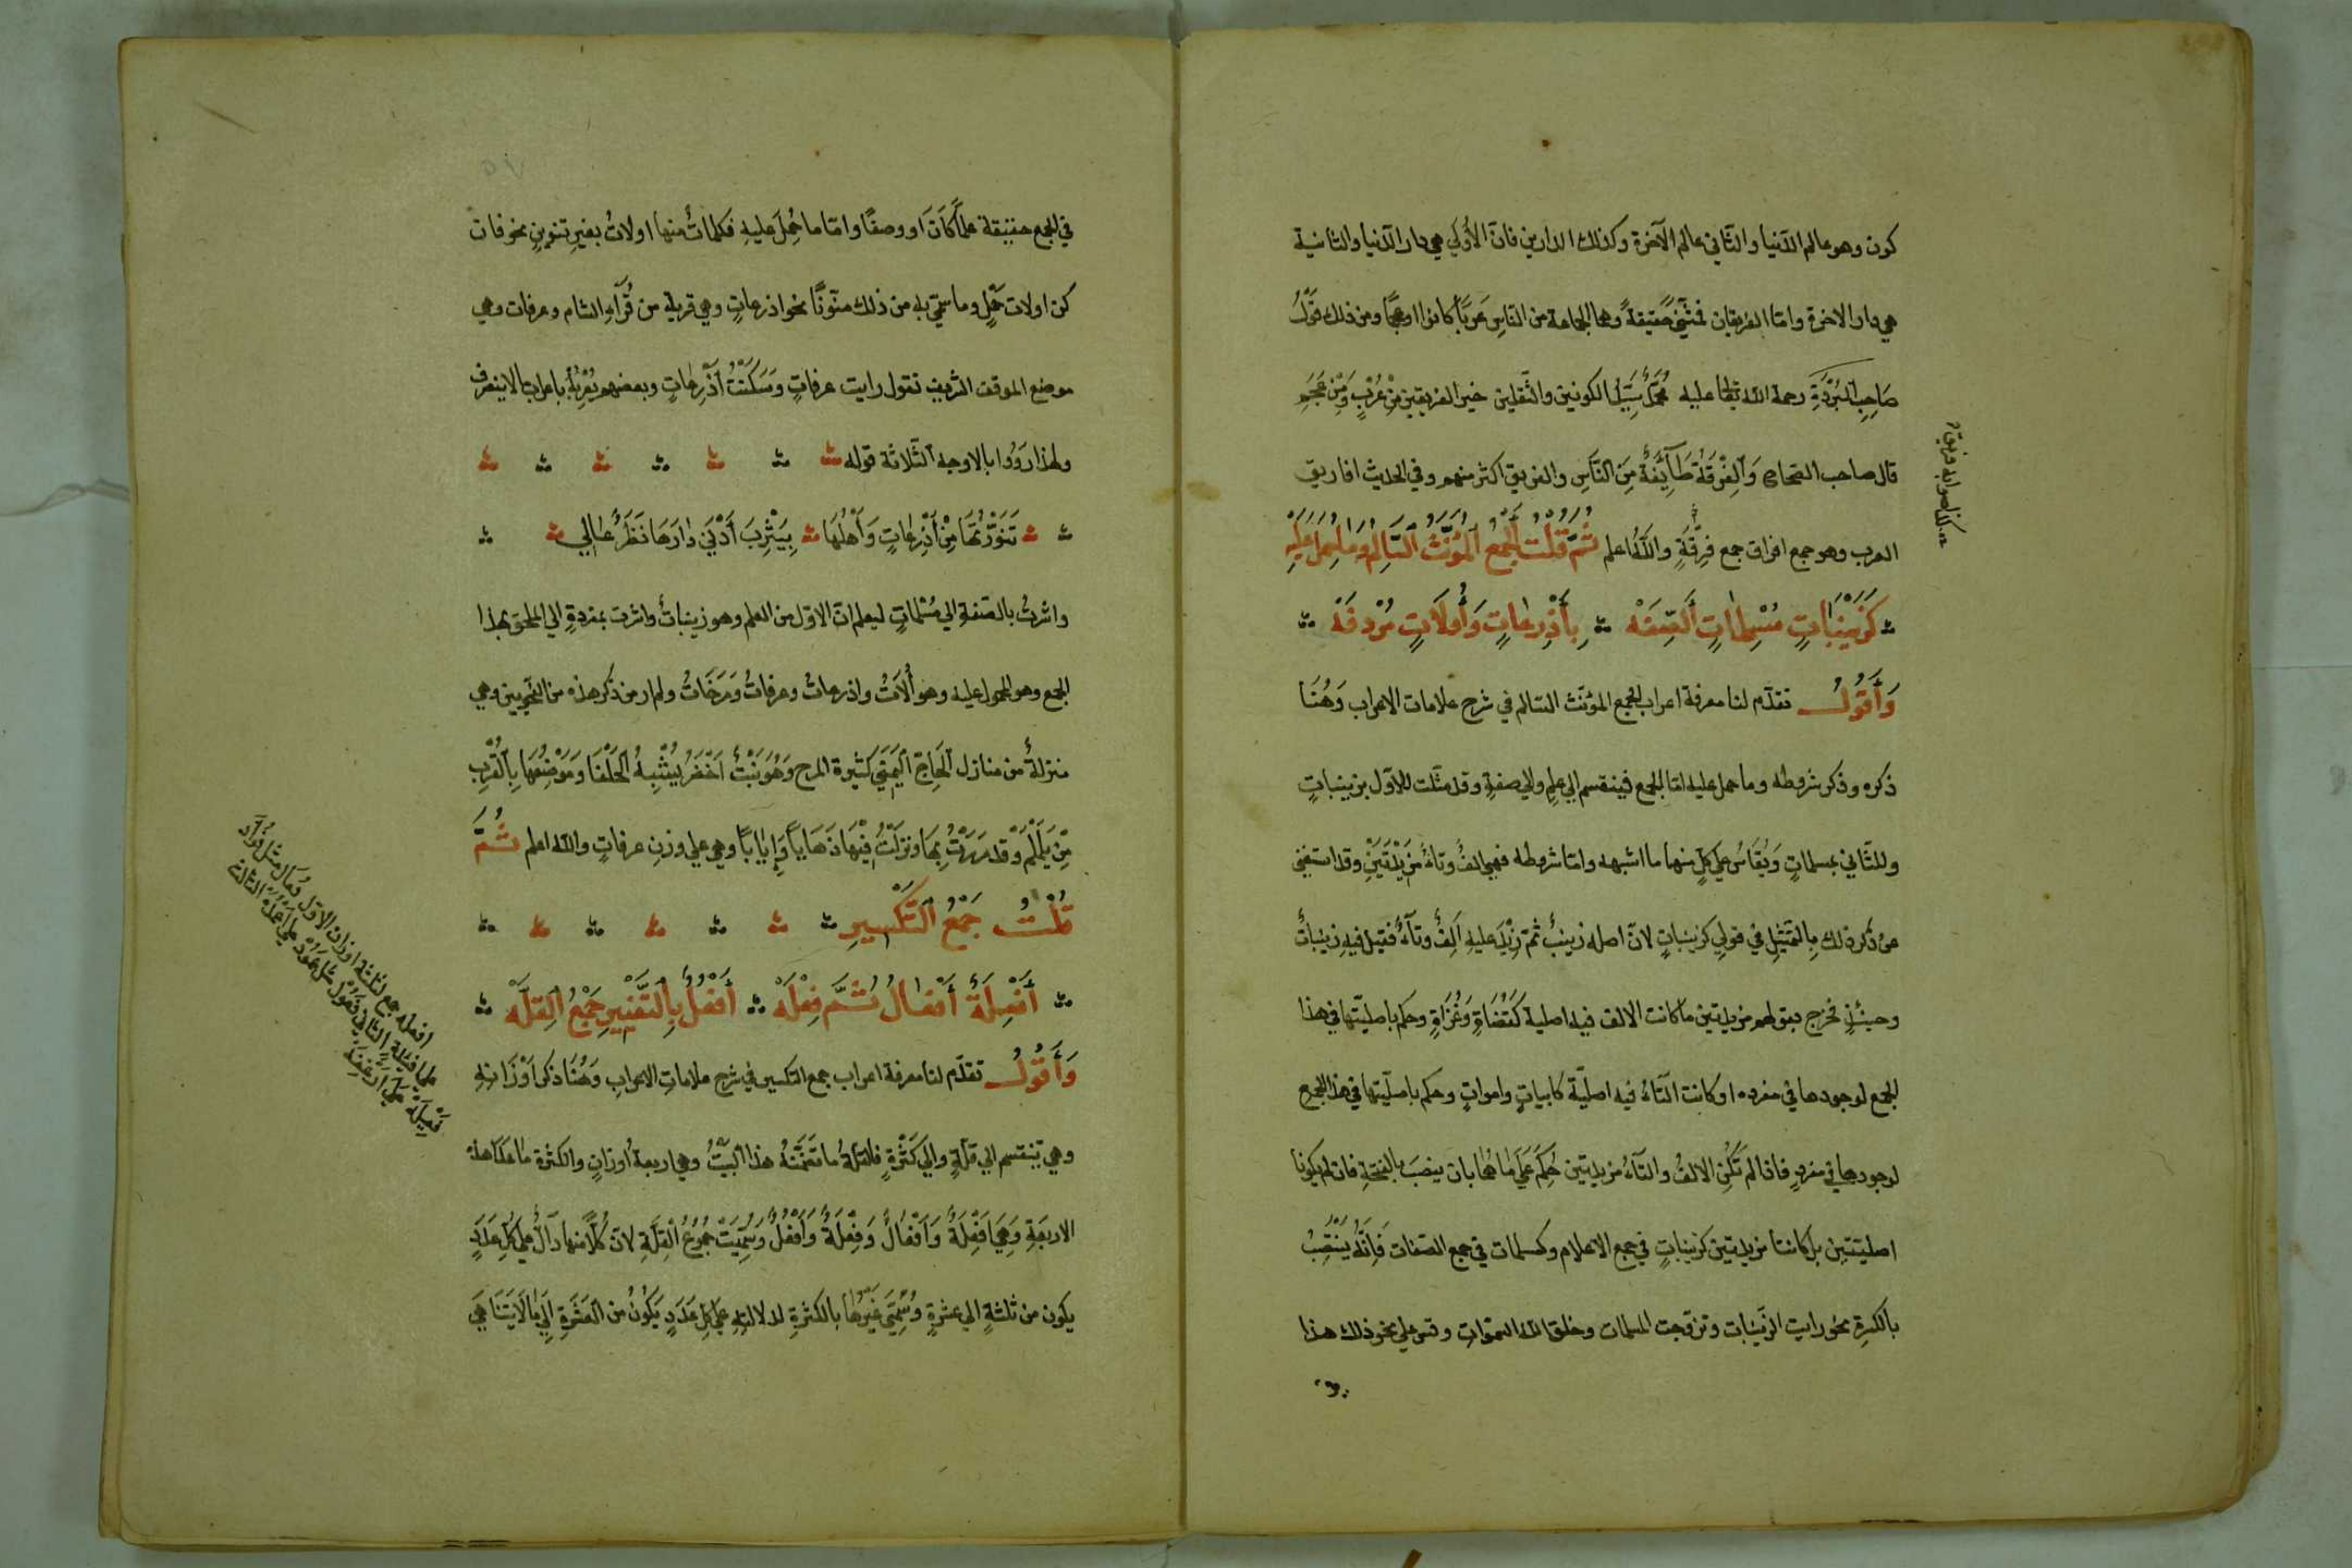 كون وهو عالم الدّنيا والثّاني عالم الآخرة وكذلك الدارين فانّ الأولي هي دار الدّنيا والثانية
هي دار الاخرة وامّا الفريقان فمثنّيً حقيقةً وهما الجماعة من النّاسِ عَرَبًا كانوا او عجمًا ومن ذلك قَوْلُ
صَاحِبِ الْبُرْدَةِ رحمة الله تعالى عليه محمدٌ سيّد الكونين والثّقلين خير الفريقين مِنْ عُرْبٍ وَمِنْ عَجَمِ
قال صاحب الصّحاح وَالْفِرْقَةُ طَآئِفَةٌ مِنَ النَّاسِ والفريق اكثر منهم وفي الحديث افاريق
العرب وهو جمع افراق جمع فِرْقَةٍ واللّٰه اعلم ثُمَّ قُلْتُ الْجَمْعُ الْمُؤَنَّثُ السَّالِمُ وَمَا حُمِلَ عَلَيْهِ
كَزَيْنَبَاتٍ مُسْلِمَاتٍ الصِّفَةْ بِأَذْرِعَاتٍ وَأُولَاتٍ مُرْدَفَةْ
وَأَقُولُ تقدّم لنا معرفة اعراب الجمع المؤنّث السّالم في شرح علامات الاعراب وَهُنَا
ذكره وذكر شروطه وما حمل عليه امّا الجمع فينقسم الي علمٍ والي صفةٍ وقد مثّلت للأوّل بزينباتٍ
وللثّاني بمسلماتٍ وَيُقَاسُ علي كلٍ منهما ما اشبهه وامّا شروطه فهي الفٌ وتاءٌ مَزِيْدَتَيْنِ وقد استغني
عن ذكر ذلك بالتمثيل في قولي كزينباتٍ لانّ اصله زينبُ ثمّ زِيْدَ عليه اَلِفٌ وتَآءٌ فقيل فيه زينباتٌ
وحينئذٍ فخرج بقولهم مزيدتين ما كانت الالف فيه اصلية كَقُضَاةٍ وَغُزَاةٍ وحكم باصليّتها في هذا
الجمع لوجودها في مفرده او كانت التّاءُ فيه اصليّة كابياتٍ وامواتٍ وحكم باصليّتها في هذا الجمع
لوجودها في مفردٍ فاذا لم تَكُنِ الالفُ والتّآءُ مزيدتين حُكِمَ عَلَي مَا هُمَا بان ينصبَ بالفتحةِ فان لم يكونا
اصليّتين بل كانتا مزيدتين كزينباتٍ في جمع الاعلام وكمسلمات في جمع الصّفات فَإنَّهُ يَنْتَصِبُ
بالكسرةِ نحو رايت الزّينبات وتزوّجت المسلمات وخلق اللّٰه السّموات وقس علي نحو ذلك هذا
كذا صوابه فريق
في الجمع حقيقة علمًا كَانَ او وصفًا وامّا ما حُمِلَ عليهِ فكلماتٌ منها اولاتُ بغيرِ تنوينٍ نحو فان
كن اولات حَمْلٍ وما سمّي به من ذلك منوّنًا نحو اذرعاتٍ وهي قرية من قُرَآءِ الشّام وعرفات وهي
موضع الموقف الشّريف تقول رايت عرفاتٍ وَسَكَنْتُ أَذْرِعَاتٍ وبعضهم يُعْرِبُهُ باعراب الاينصرف
ولهذا رَوَوُا بالاوجه الثّلاثة قوله
تَنَوَّرْتُهَا مِنْ أَذْرِعَاتٍ وَأَهْلُهَا بِيَثْرِبَ أَدْنَي دَارِهَا نَظَرٌ عَالِي
واشرتُ بالصّفة الي مُسْلماتٍ ليعلم انّ الاوّل من العلم وهو زينباتٌ واشرت بمردفةٍ الي الملحق بهذا
الجمع وهو المحمول عليه وهو أُلَاتُ واذرعاتٌ وعرفاتٌ وَمَرَخَاتٌ ولم ار من ذكر هذه من النّحويّين وهي
منزلةٌ من منازل اَلْحَاجّ اليَمَنِي كثيرة المرح وَهُوَ نَبْتٌ أَخْضَرُ يُشْبِهُ الْحَلْفَا وَمَوْضِعُهَا بِالْقُرْبِ
مِنْ يَلَمْلَمْ وَقَد مَرَرْتُ بِهَا ونَزَلْتُ فِيْهَا ذَهَابًا وَإيَابًا وهي علي وزن عرفاتٍ واللّٰه اعلم ثُمَّ
قُلْتُ جَمْعُ التَّكْسِيرِ
أَفْعِلَةٌ أَفْعَالُ ثُمَّ فِعْلَةْ أَفْعُلُ بِالتَّغْيِيرِ جَمْعُ الْقِلَّةْ
وَأَقُولُ تقدّم لنا معرفة اعراب جمع التكسير في شرح علاماتِ الاعرابِ وَهُنَا ذكر اَوْزَانِهِ
وهي تنقسم الي قلّةٍ والي كَثْرَةٍ فالقلّةُ ما تَضَمَّنَهُ هذا البيتُ وهي اربعة اوزانٍ والكثرة ما عَدَا هذه
الاربعَةِ وَهِيَ اَفْعِلَةٌ وَاَفْعَالٌ وَفِعْلَةٌ وَأَفْعُلٌ وَسُمِّيَتْ جُمُوعُ الْقِلَّةِ لانّ كُلًّا منها دَآلٌّ علي كُلِّ عَدَدٍ
يكون من ثلثةٍ الي عشرةٍ وَسُمِّيَ غَيْرُهَا بالكثرةِ لدلالتِهِ عَلَي كُلِّ عَدَدٍ يَكُونُ من الْعَشَرَةِ إلَي مَا لَا يَتَنَاهَي
افعلة جمع لثلثة اوزان الاوّل فُعَال مثل فُؤاد
علي افئدة الثّاني فَعُوْل مثل عَمُوْد علي أَعْمِدَة الثالثة
فَعِيْلَة علي أَرْغِفَة